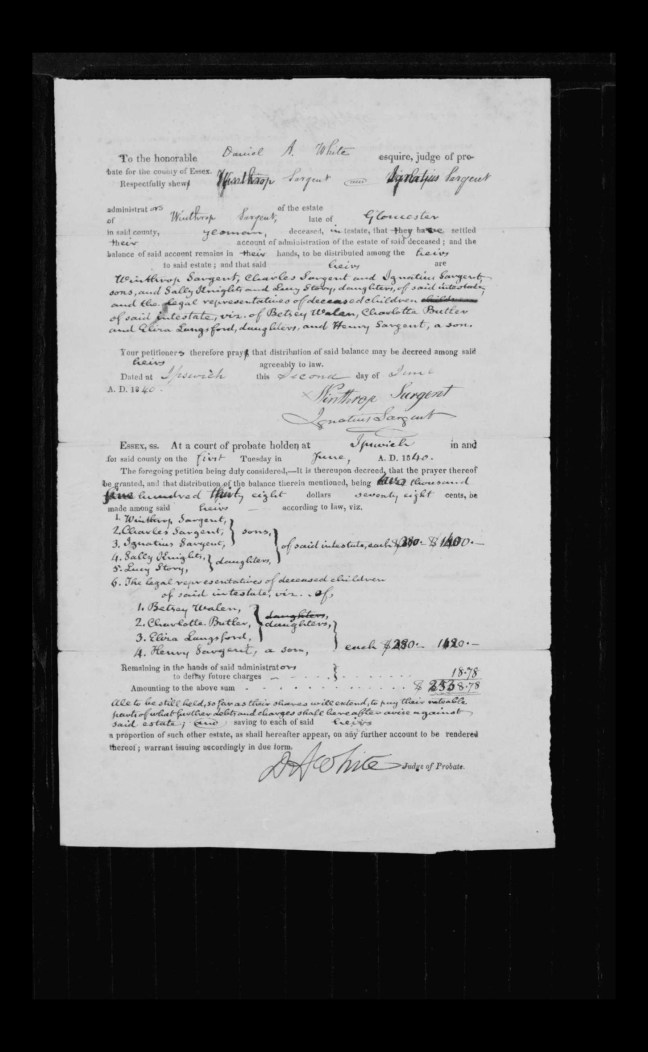 To the honorable Daniel A. White esquire, judge of pro-
bate for the county of Essex.
Respectfully shew Winthrop Sargent and Ignatius Sargent
administrators of the estate
of Winthrop Sargent, late of Gloucester
in said county, yeoman, deceased, intestate, that they have settled
their account of administration of the estate of said deceased; and the
balance of said account remains in their hands, to be distributed among the heirs
to said estate; and that said heirs are
Winthrop Sargent, Charles Sargent and Ignatius Sargent,
sons, and Sally Knights and Lucy Story, daughters, of said intestate,
and the legal representatives of deceased children children
of said intestate, viz. of Betsey Walen, Charlotte Butler
and Eliza Langsford, daughters, and Henry Sargent, a son.
Your petitioners therefore pray that distribution of said balance may be decreed among said
heirs agreeably to law.
Dated at Ipswich this second day of June
A. D. 1840.
Winthrop Sargent
Ignatius Sargent
ESSEX, ss. At a court of probate holden at Ipswich in and
for said county on the first Tuesday in June, A. D. 1840.
The foregoing petition being duly considered,—It is thereupon decreed, that the prayer thereof
be granted, and that distribution of the balance therein mentioned, being thousand
hundred thirty eight dollars seventy eight cents, be
made among said heirs — according to law, viz.
1. Winthrop Sargent,
2. Charles Sargent, } sons,
3. Ignatius Sargent,
4. Sally Knights, } daughters, } of said intestate, each
5. Lucy Story,
6. The legal representatives of deceased children
of said intestate, viz. of,
1. Betsey Walen, daughters,
2. Charlotte Butler, } daughters,
3. Eliza Langsford,
4. Henry Sargent, a son, } each
Remaining in the hands of said administrators
to defray future charges 18.78
Amounting to the above sum $ 8.78
All to be still held, so far as their shares will extend, to pay their rateable
parts of what further debts and charges shall hereafter arise against
said estate; and saving to each of said heirs
a proportion of such other estate, as shall hereafter appear, on any further account to be rendered
thereof; warrant issuing accordingly in due form.
D A White Judge of Probate.